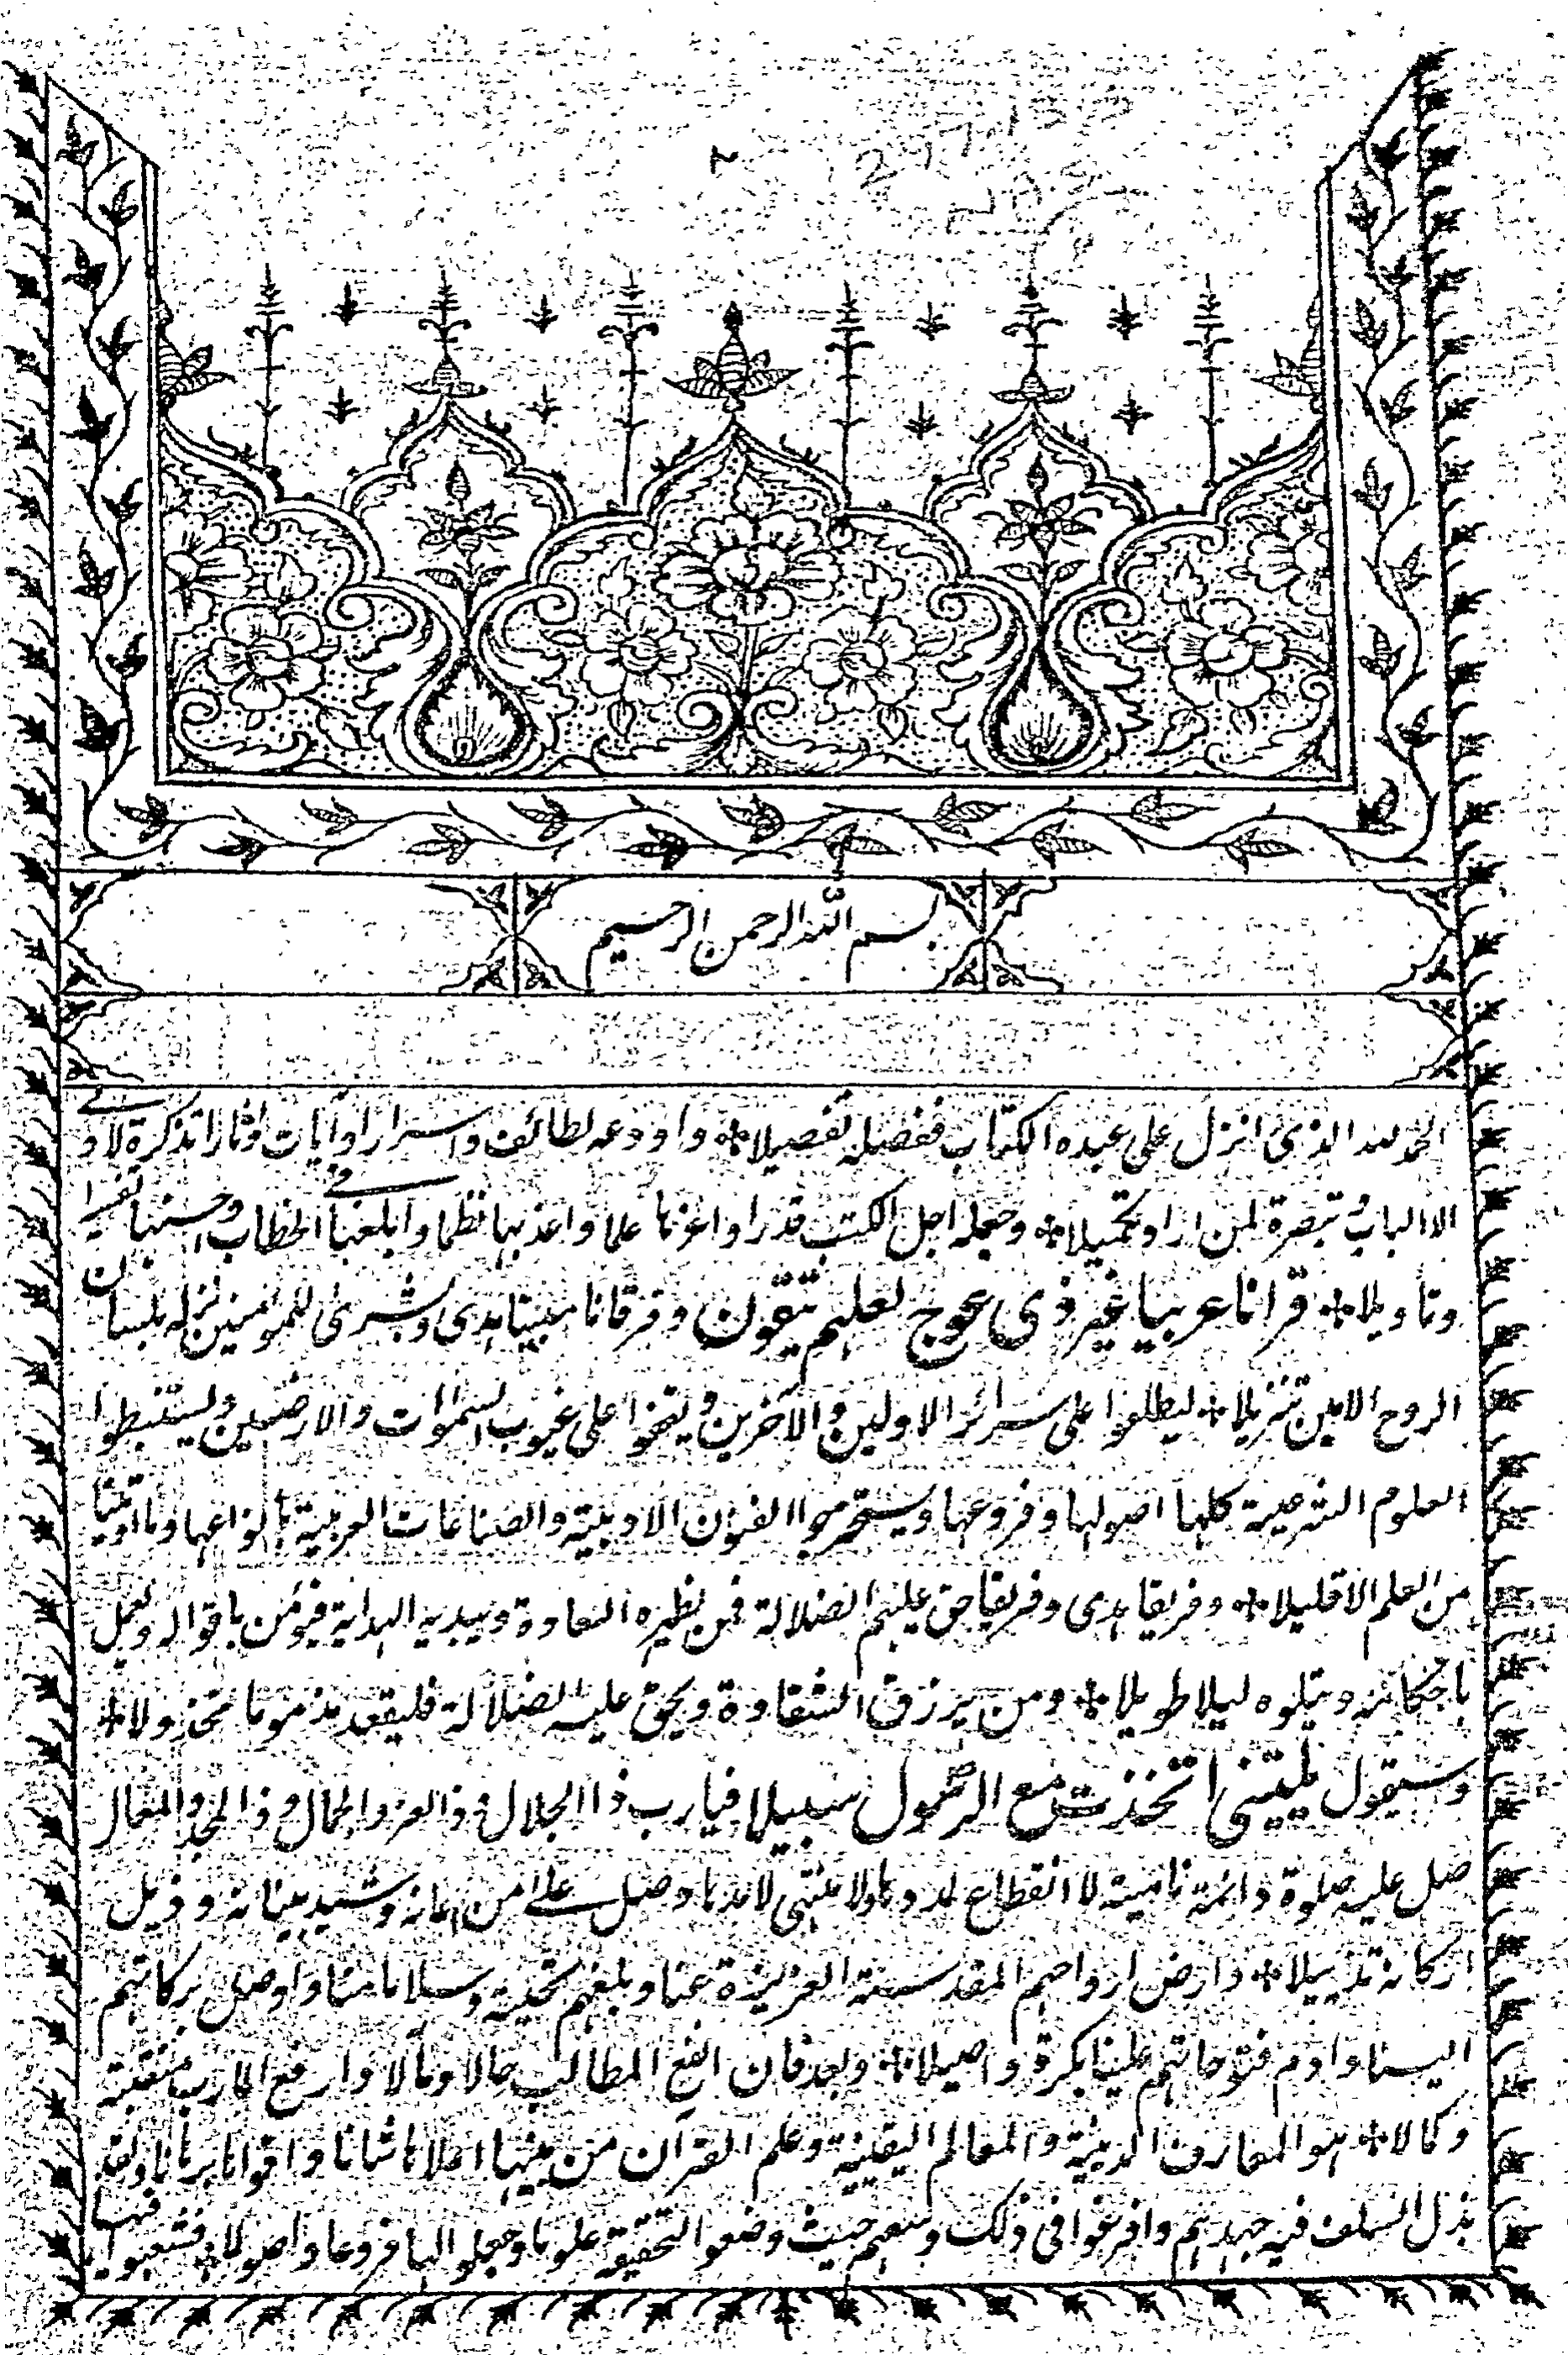 بسم الله الرحمن الرحيم
الحمد لله الذى انزل على عبده الكتاب ففصله تفصيلا * واودعه لطائف واسرارا وآيات وآثارا تذكرة لاولى
الالباب وتبصرة لمن اراد تكميلا * وجعله اجل الكتب قدرا واغزرها علما واعذبها نظما وابلغها فى الخطاب واحسنها تفسيرا
وتأويلا * قرانا عربيا غير ذى عوج لعلهم يتقون وفرقانا مبينا هدى وبشرى للمؤمنين نزله بلسان
الروح الامين تنزيلا * ليطلعوا على سرائر الاولين والآخرين على غيوب السموات والارضين وليستنبطوا
العلوم الشرعية كلها اصولها وفروعها الفنون الادبية والصناعات العربية بانواعها وما اوتينا
من العلم الا قليلا * وفريقا هدى وفريقا حق عليهم الضلالة فمن السعادة الهداية فيؤمن باقواله ويعمل
باحكامه ويتلوه ليلا طويلا * ومن يرزق الشقاوة ويحق عليه الضلالة فليقعد مذموما مخذولا *
وسيقول يليتنى اتخذت مع الرسول سبيلا فيارب ذا الجلال وذا العز والجمال وذا المجد والمعال
صل عليه صلوة دائمة نامية لا انقطاع ولا منتهى لامدها وصل على من اعانه وشيد بنيانه
اركانه تذييلا * وارض ارواحهم المقدسة العزيزة عنا وبلغهم تحية وسلاما منا واوصل بركاتهم
الينا وادم فتوحاتهم علينا بكرة واصيلا * وبعد فان انفع المطالب حالا ومآلا وارفع المآرب منقبة
وكمالا * هو المعارف الدينية والمعالم اليقينية وعلم القرآن من بينها اعلاها شانا واقواها برهانا ولقد
بذل السلف فيه جهدهم وافرغوا فى ذلك وسعهم حيث وضعوا لتحقيقه علوما وجعلوا لها فروعا واصولا فيها